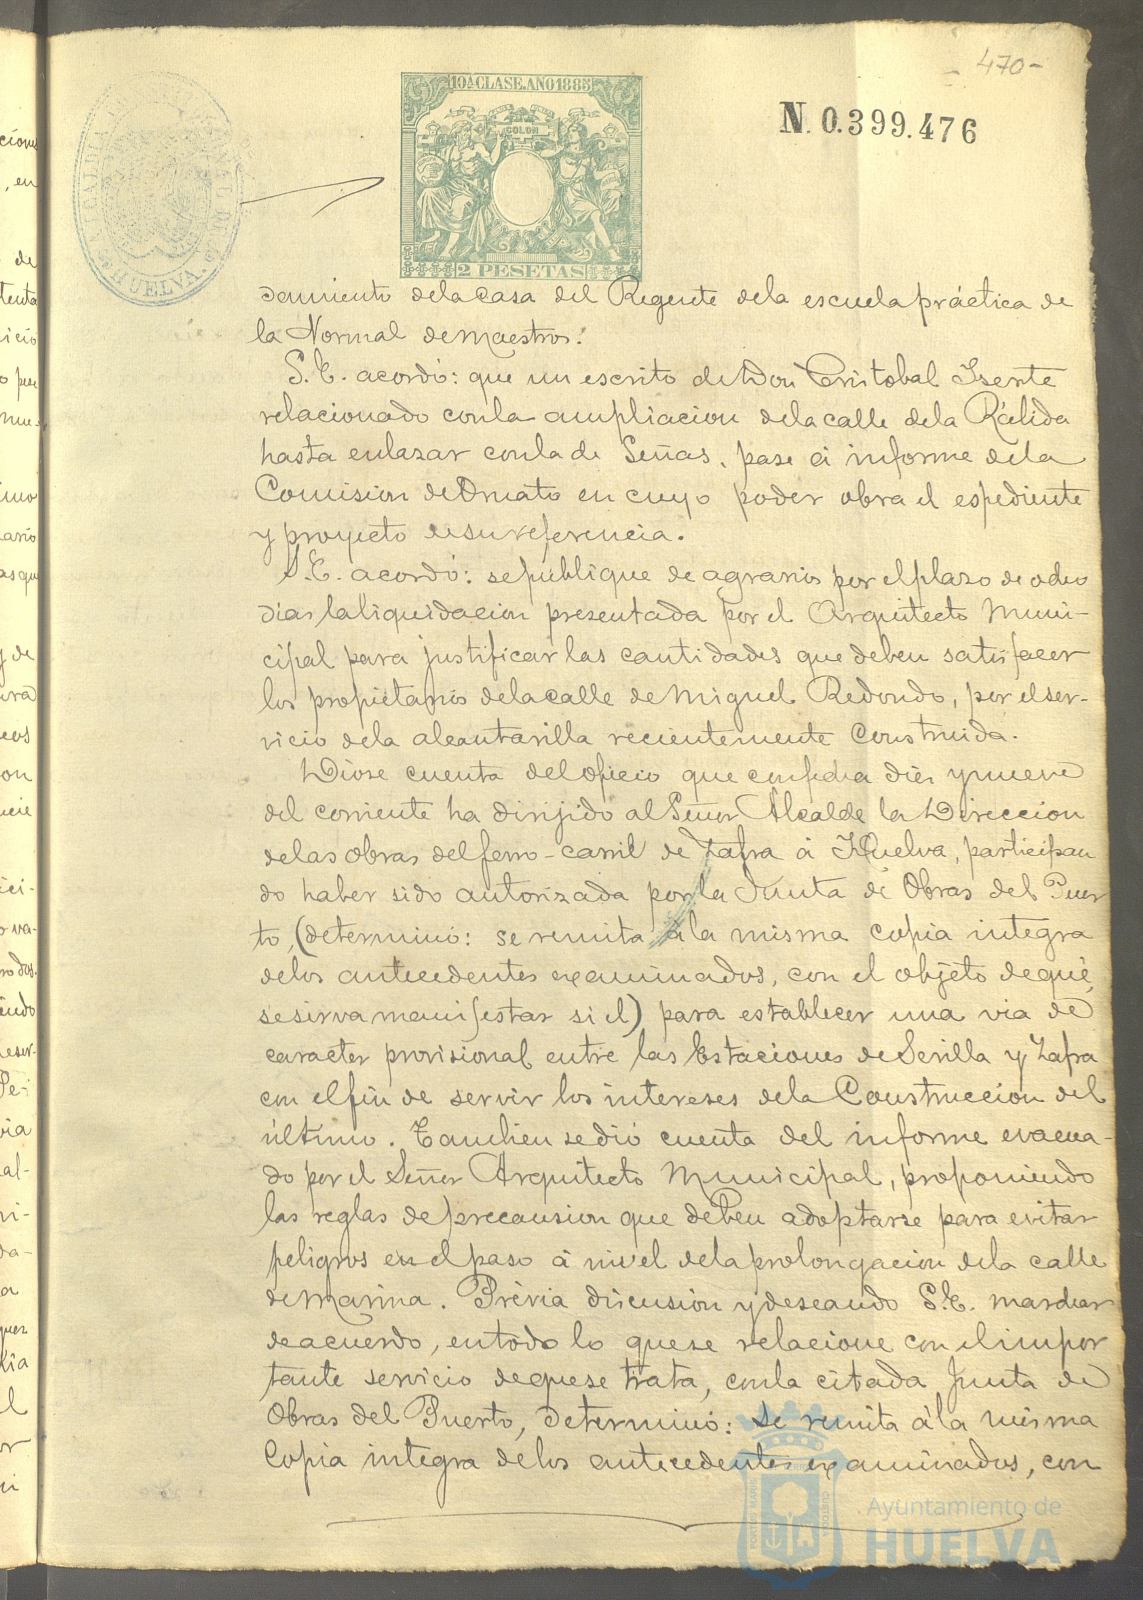 -470-
10ª CLASE. AÑO 1885
COLON
2 PESETAS
N. 0.399.476
HUELVA.
damiento dela casa del Regente dela escuela práctica de
la Normal de Maestros.
S.E. acordó: que un escrito de Don Cristobal Isente
relacionado conla ampliacion dela calle dela Rábida
hasta enlazar conla de Señas, pase á informe dela
Comision de Ornato en cuyo poder obra el espediente
y proyecto desu referencia.
S.E. acordó: se publique de agravios por el plazo de ocho
dias la liquidacion presentada por el Arquitecto Muni-
cipal para justificar las cantidades que deben satisfacer
los propietarios dela calle de Miguel Redondo, por el ser-
vicio dela alcantarilla recientemente construida.
Diose cuenta del oficio que con fecha diez y nueve
del corriente ha dirijido al Señor Alcalde la Direccion
delas obras del ferro-carril de Zafra á Huelva, participan
do haber sido autorizada por la Junta de Obras del Puer
to, (determinó: se remita á la misma copia integra
delos antecedentes examinados, con el objeto de que,
se sirva manifestar si el) para establecer una via de
caracter provisional entre las Estaciones de Sevilla y Zafra
con el fin de servir los intereses dela Construccion del
último. Tambien se dió cuenta del informe evacua-
do por el Señor Arquitecto Municipal, proponiendo
las reglas de precausion que deben adoptarse para evitar
peligros en el paso á nivel dela prolongacion dela calle
de Marina. Prévia discusion y deseando S.E. marchar
de acuerdo, en todo lo que se relacione con el impor
tante servicio de que se trata, con la citada Junta de
Obras del Puerto, determinó: Se remita á la misma
Copia integra delos antecedentes examinados, con
Ayuntamiento de
HUELVA